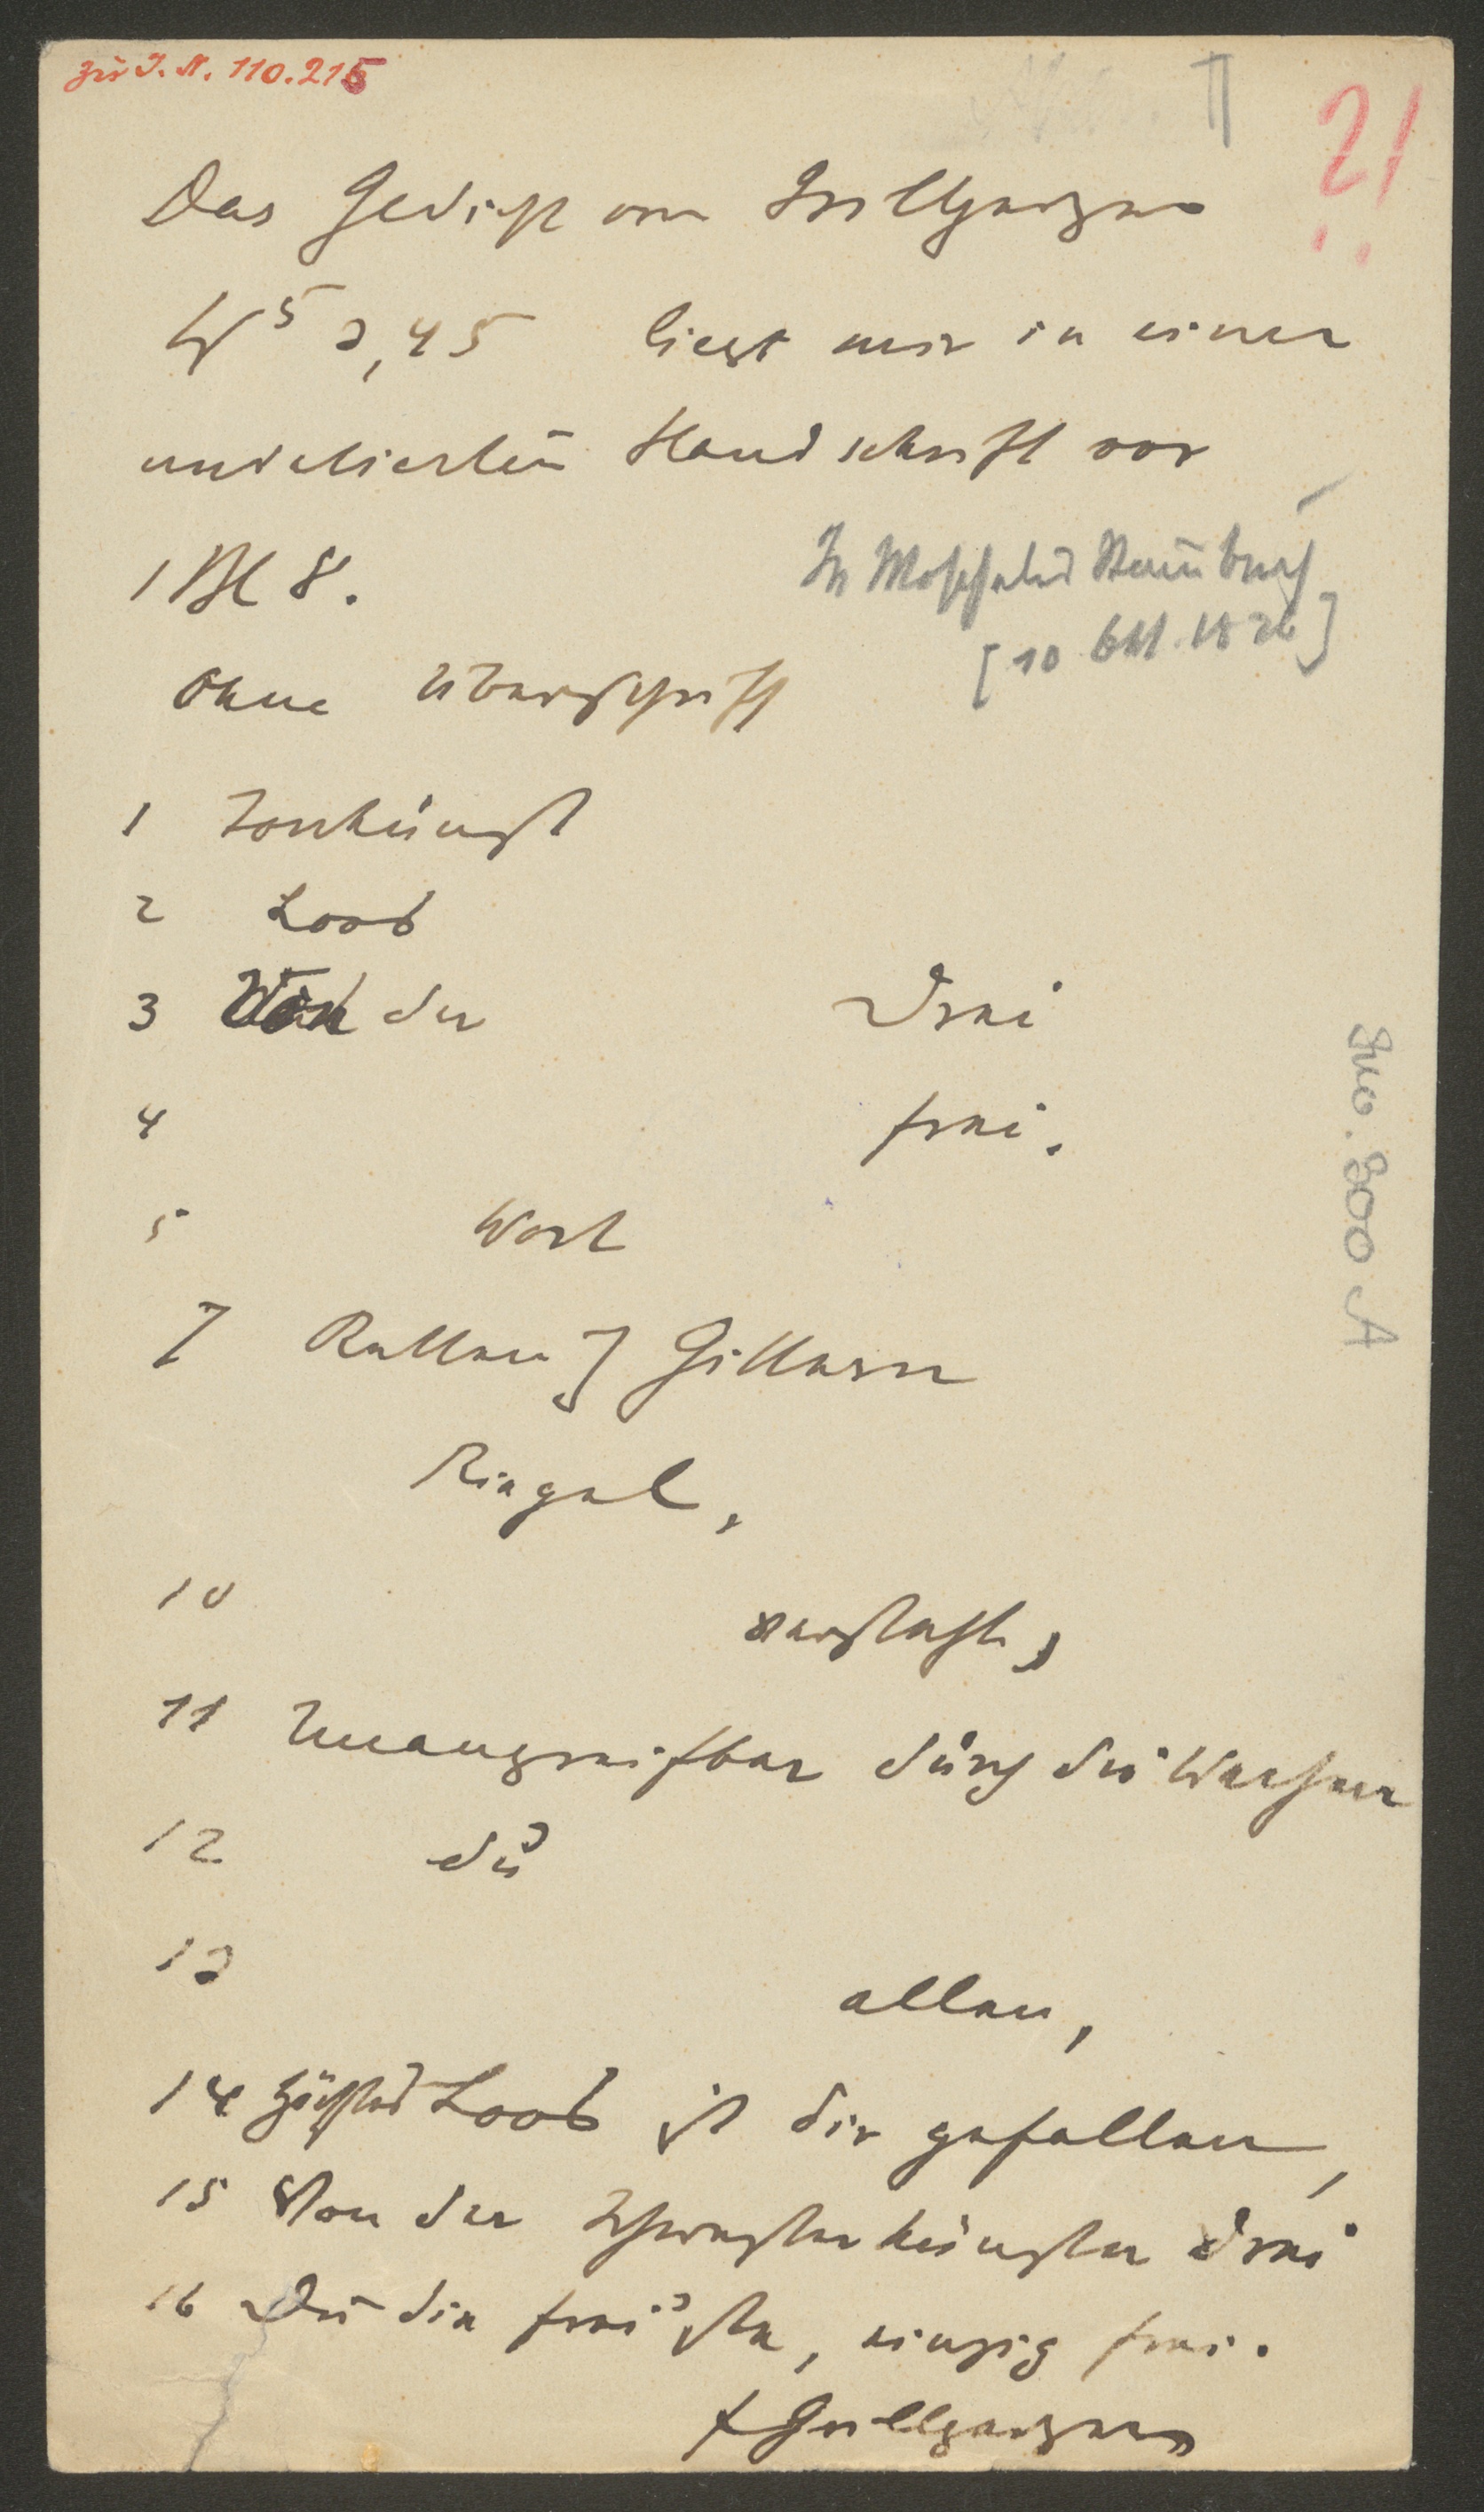 zu I. N. 110.215
II
?!
Das Gedicht von Grillparzer
W⁵ 3,45 liegt mir in einer
undatierten Handschrift vor
1 Bl 8°.
In Moscheles Stammbuch
[10 Okt. 1826]
Ohne Überschrift
1 Tonkunst
2 Loob
3 Von der Drei
4 frei.
5 Wort
7 Ketten] Gittern
Riegel,
10 versteht,
11 Unangreifbar durch die Wächter
12 du
13 allen,
14 höchstes Loob ist dir gefallen,
15 Von der Schwesterkünste Drei
16 Du die frei'ste, einzig frei.
F Grillparzer
300 A